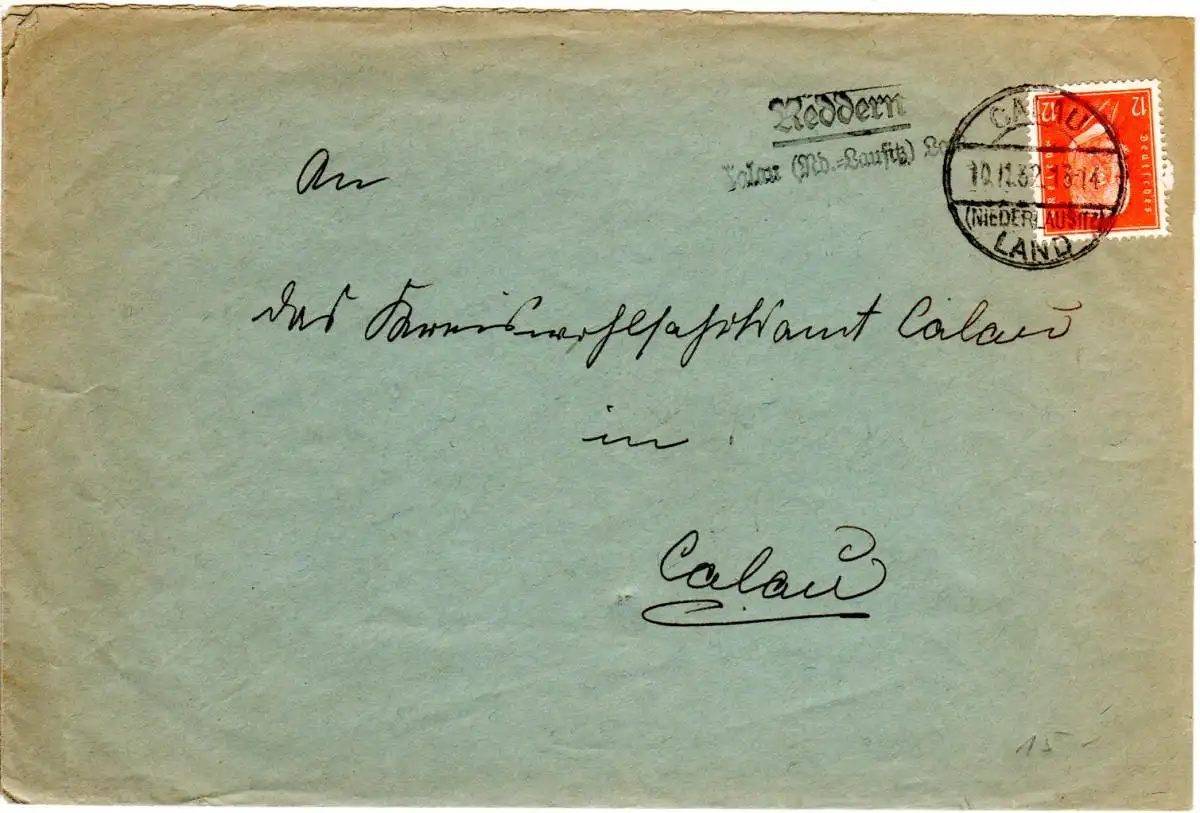 Reddern
Calau (Nd.=Lausitz) La
CALAU
10.11.32.13-14
(NIEDERLAUSITZ)
LAND
12 12
Deutsches
An
das Kreiswohlfahrtsamt Calau
in
Calau
15 -